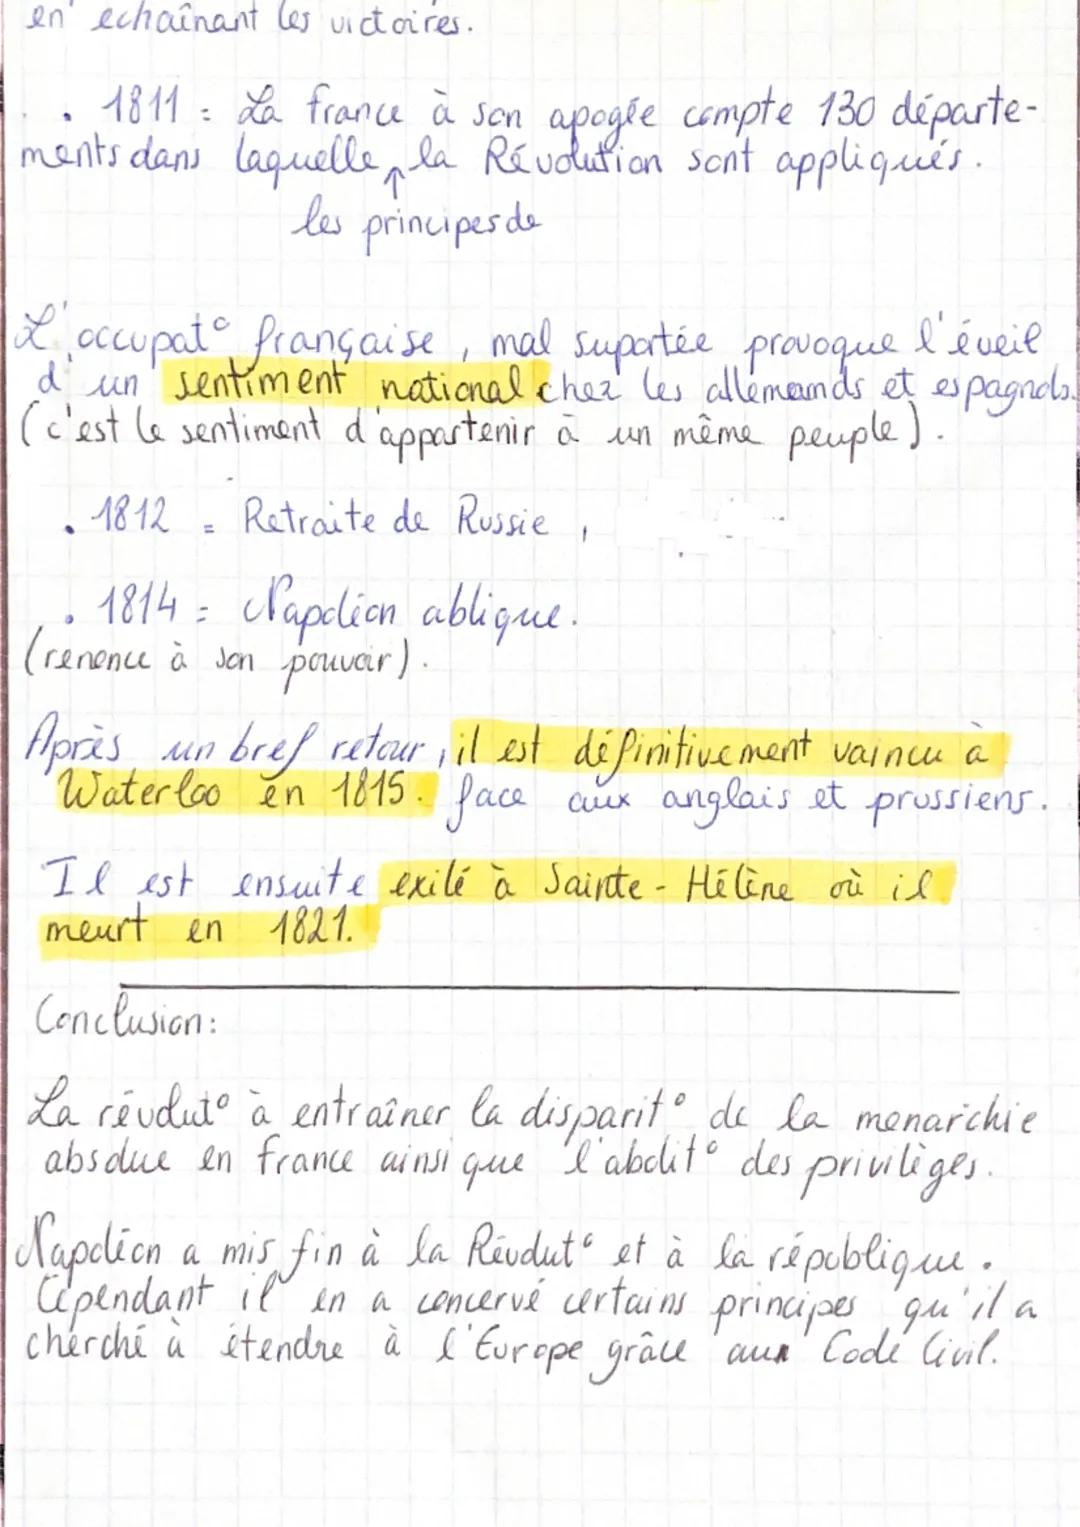 en' echaînant les victoires.
. 1811 = La france à son apogée compte 130 départe-
ments dans laquelle ↑ la Révolution sont appliqués.
les principes de
L'occupat° française, mal suportée provoque l'éveil
d'un sentiment national chez les allemands et espagnols.
(c'est le sentiment d'appartenir à un même peuple).
. 1812 = Retraite de Russie,
. 1814 = Napoléon ablique.
(renonce à son pouvoir).
Après un bref retour, il est définitivement vaincu à
Waterloo en 1815. face aux anglais et prussiens.
Il est ensuite exilé à Sainte-Hélène où il
meurt en 1821.
Conclusion:
La révolut° à entraîner la disparit° de la monarchie
absolue en france ainsi que l'abolit° des privilèges.
Napoléon a mis fin à la Révolut° et à la république.
Cependant il en a concervé certains principes qu'il a
cherché à étendre à l'Europe grâce aux Code Civil.